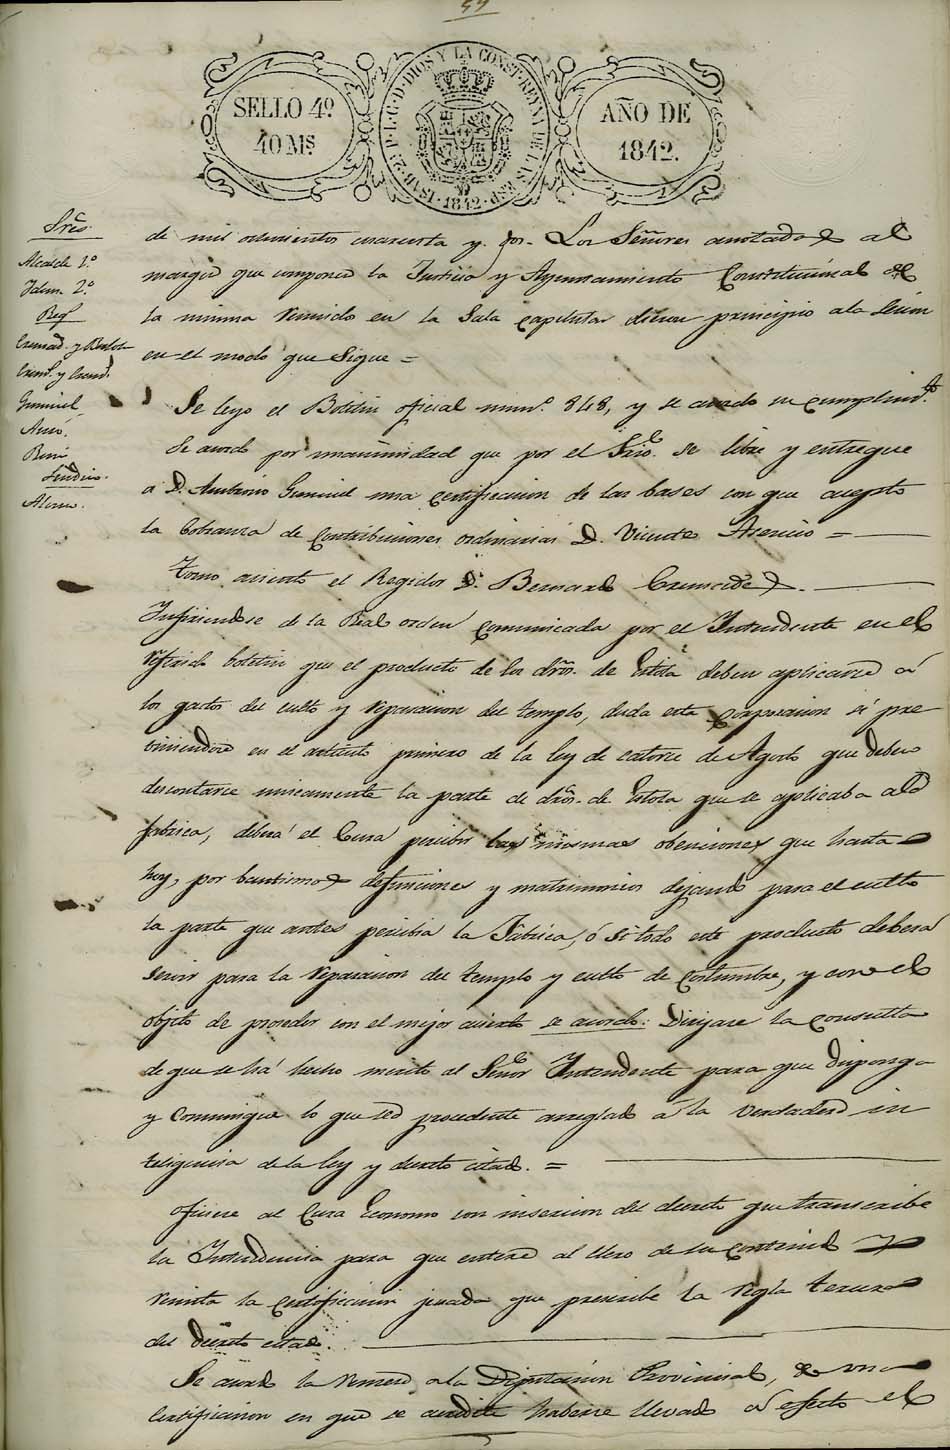 SELLO 4º
40 Ms
ISAB. 2ª P. L. G. D. DIOS Y LA CONST. REYNA DE LAS ESP.
1842
AÑO DE
1842.
Sres.
Alcalde 1.º
Idem 2.º
Reg.
Cremad. y
Crem. y Cremd.
Gumiel
Asenº.
Sindico.
de mil ochocientos cuarenta y dos. Los Señores anotados al
margen que componen la Justicia y Ayuntamiento Constitucional de
la misma reunido en la Sala Capitular dieron principio a la sesion
en el modo que sigue =
Se leyo el Boletin oficial num.º 848, y se acordo su cumplimtº.
Se acordo por unanimidad que por el Srio. se libre y entregue
a D. Ambrosio Gumiel una certificacion de las bases con que acepto
la Cobranza de Contribuciones ordinarias D. Vicente Asencio =
Tomo asiento el Regidor D. Bernardo Cremades.
Infiriendose de la Real orden comunicada por el Intendente en el
referido boletin que el producto de los dros. de Estola deben aplicarse á
los gastos del culto y reparacion del templo, duda esta Corporacion si pre
viniendose en el articulo primero de la ley de catorce de Agosto que deben
descontarse unicamente la parte de dros. de Estola que se aplicaba a la
fabrica, deberá el Cura percibir las mismas obenciones que hasta
hoy, por bautismos defunciones y matrimonios dejando para el culto
la parte que antes percibia la Fabrica, ó si todo este producto deberá
servir para la reparacion del templo y culto de costumbre, y con el
objeto de proceder con el mejor acierto se acordo: Dirijase la consulta
de que se há hecho merito al Señor Intendente para que disponga
y comunique lo que sea procedente arreglado a la verdadera in
teligencia de la ley y decreto citado. =
Oficiese al Cura Economo con insercion del decreto que transcribe
la Intendencia para que entere al Clero de su contenido y
remita la certificacion jurada que prescribe la regla tercera
del decreto citado.
Se acordo la remesa a la Diputacion Provincial, de una
Certificacion en que se acredite haberse llevado á efecto el